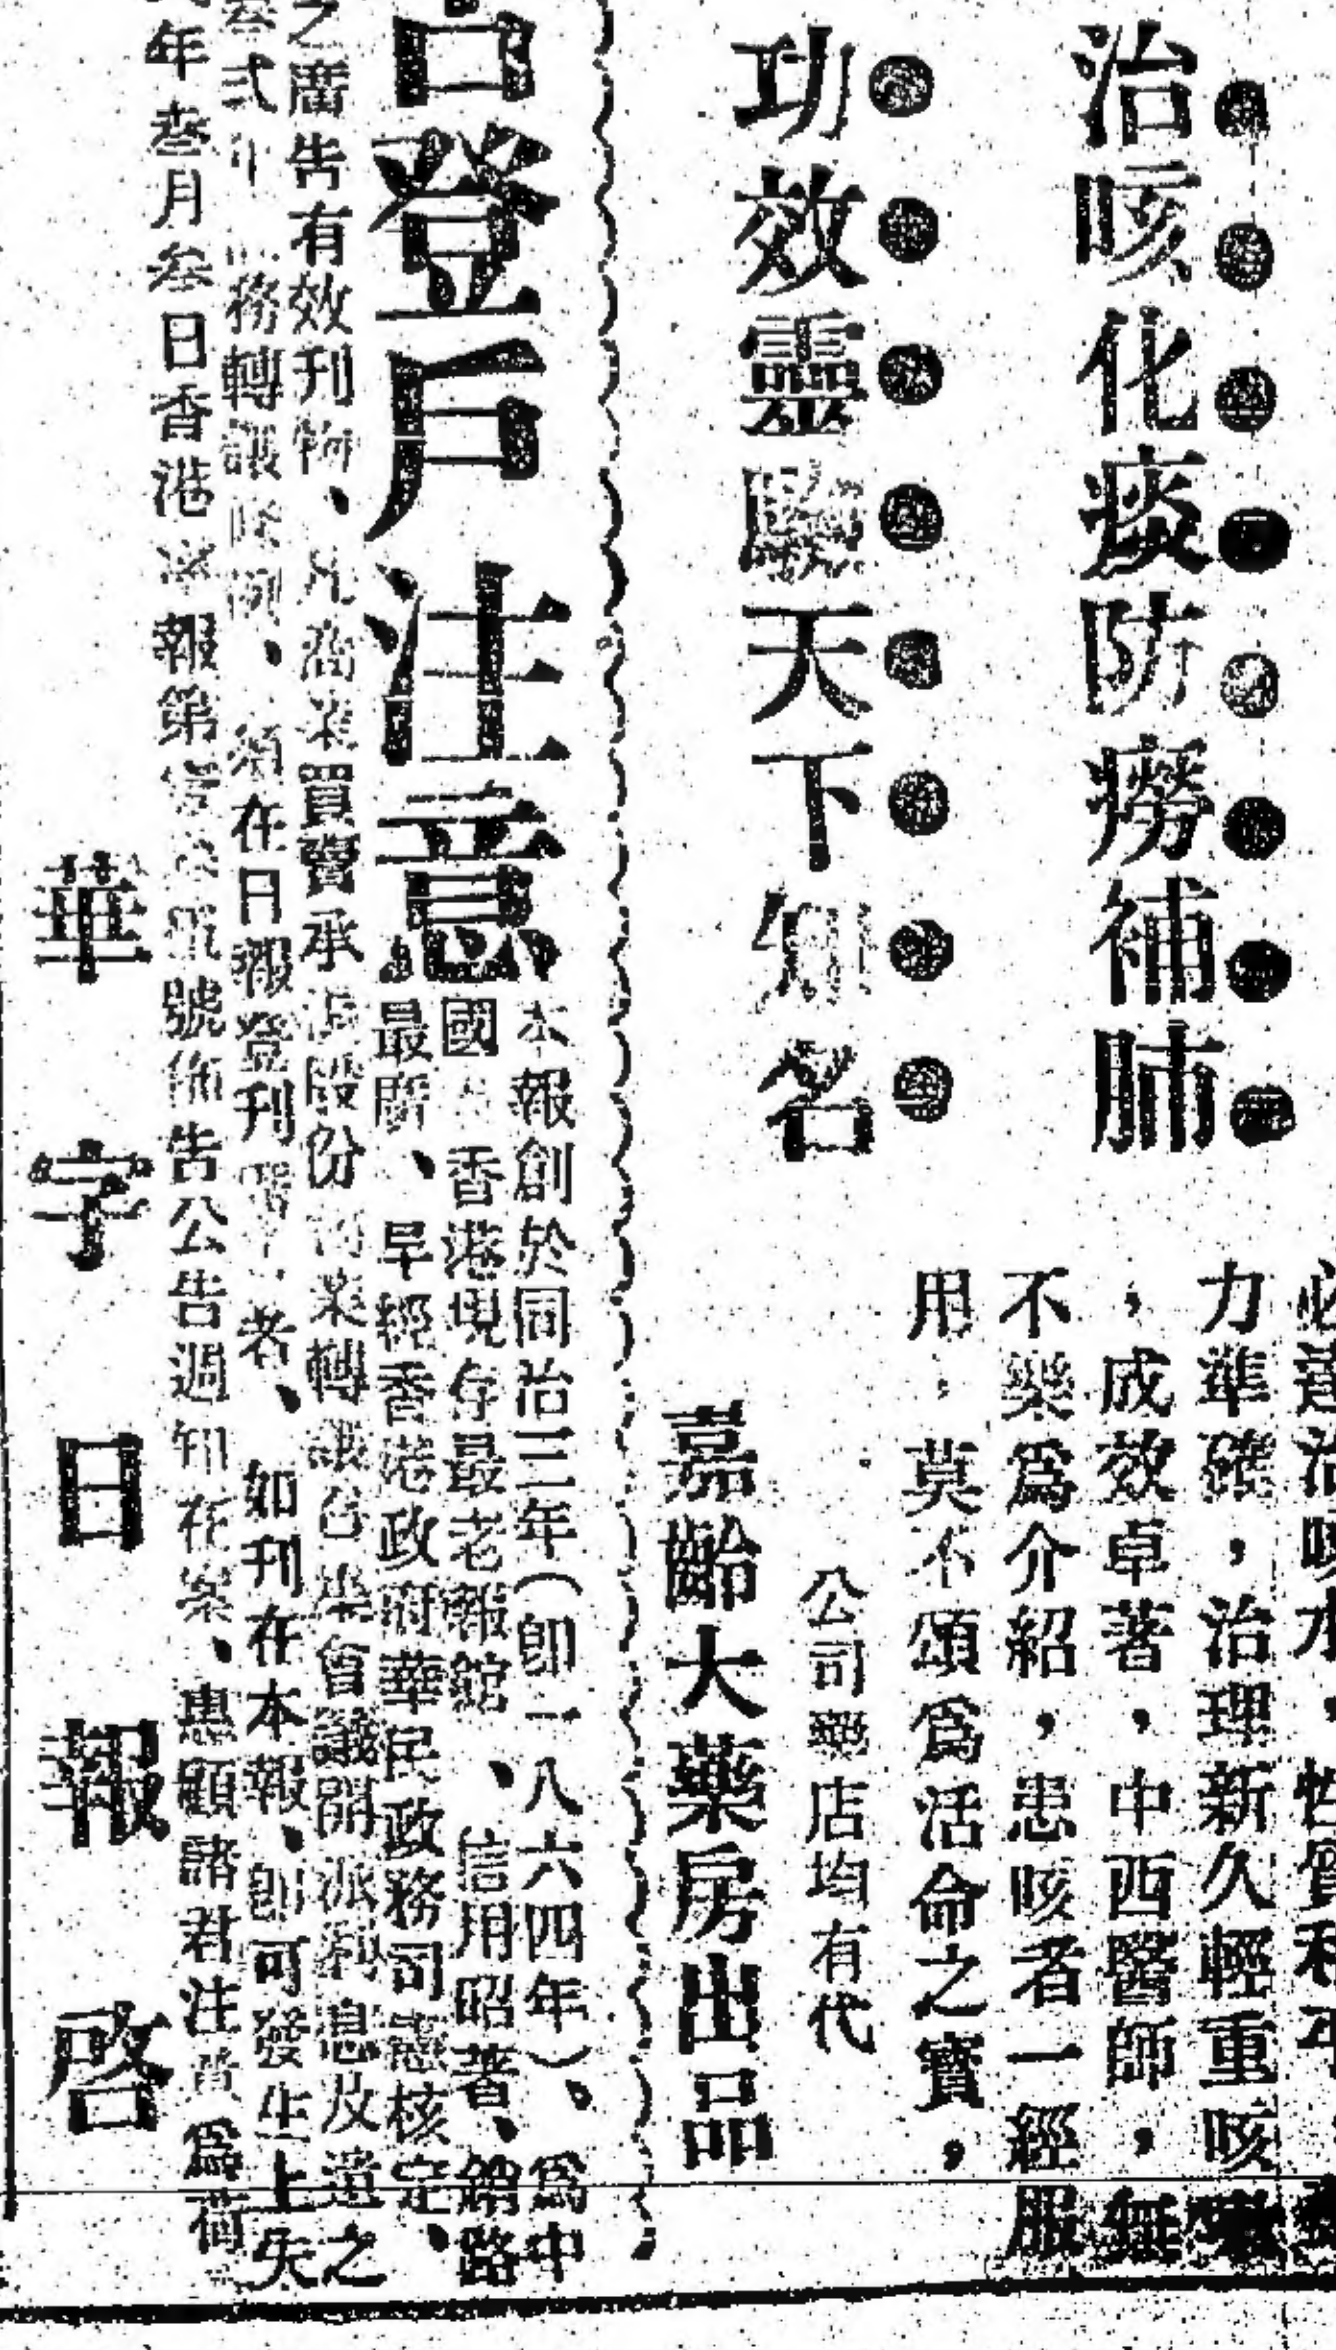 治咳化痰防癆補肺
功效靈驗天下知名
治咳水，性質和平，
力準確，治理新久輕重咳
，成效卓著，中西醫師，無
不樂爲介紹，患咳者一經服
用，莫不頌爲活命之寶，
公司藥店均有代
嘉齡大藥房出品
告登戶注意
本報創於同治三年（卽一八六四年）、爲中
國香港現存最老報館、信用昭著、銷路
最廣、早經香港政府華民政務司憲核定、
之廣告有效刋物、凡商業買賣承頂股份商業轉讓召集會議開派利息及遺
務轉讓條例、須在日報登刋者、如刋在本報、卽可發生上
年叁月叁日香港憲報第號佈告公告週知在案、惠顧諸君注意爲荷
之
失
華字日報啓